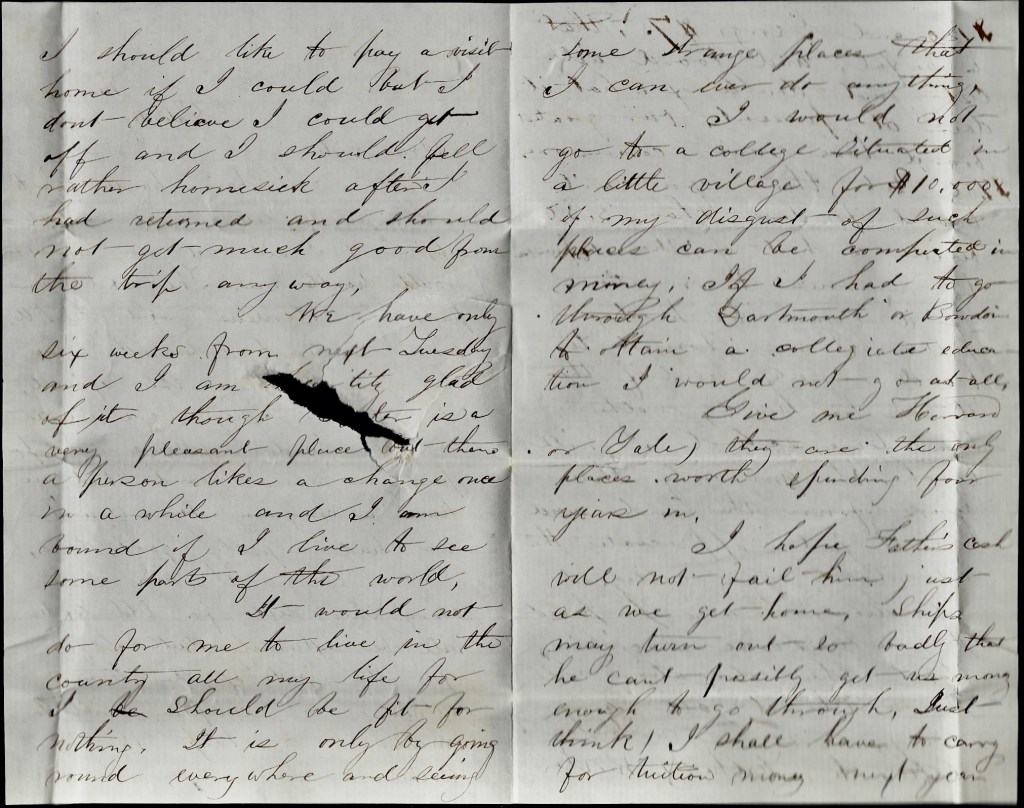 I should like to pay a visit
home if I could but I
dont believe I could get
off and I should fell
rather homesick after I
had returned and should
not get much good from
the trip anyway,
We have only
six weeks from next Tuesday
and I am glad
of it though is a
very pleasant place but then
a person likes a change once
in a while and I am
bound if I live to see
some parts of the world,
It would not
do for me to live in the
country all my life for
I be should be fit for
nothing. It is only by going
round everywhere and seeing
7.
some strange places that
I can ever do anything,
I would not
go to a college situated in
a little village for $10,000
if my disgust of such
places can be computed in
money, If I had to go
through Dartmouth or Bowdoin
to attain a collegiate educa-
tion I would not go at all,
Give me Harvard
or Yale, they are the only
places worth spending four
years in.
I hope Father's cash
will not fail him just
as we get home, Ships
may turn out so badly that
he cant possibly get us money
enough to go through, Just
think! I shall have to carry
for tuition money next year